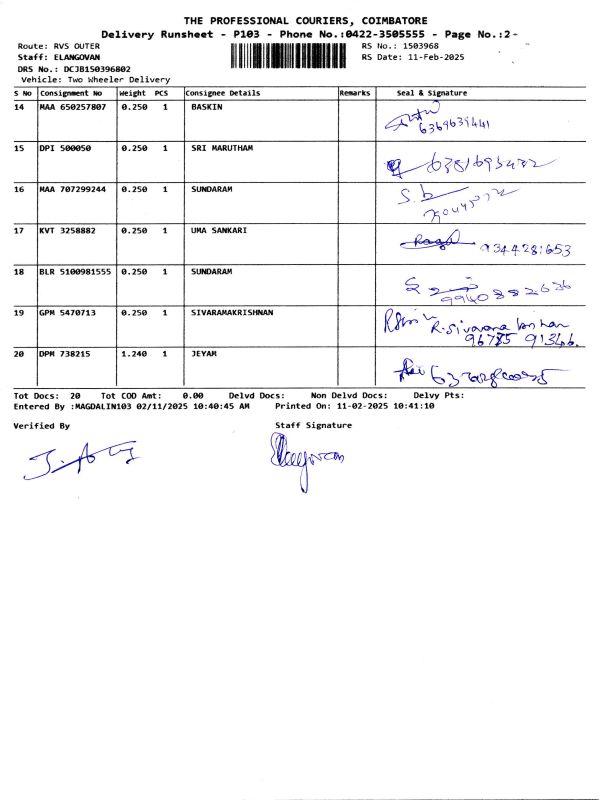 THE PROFESSIONAL COURIERS, COIMBATORE
Delivery Runsheet - P103 - Phone No.:0422-3505555 - Page No.:2-
Route: RVS OUTER RS No.: 1503968
Staff: ELANGOVAN RS Date: 11-Feb-2025
DRS No.: DCJB150396802
Vehicle: Two Wheeler Delivery
S No Consignment No Weight PCS Consignee Details Remarks Seal & Signature
14 MAA 650257807 0.250 1 BASKIN
6369639441
15 DPI 500050 0.250 1 SRI MARUTHAM
16 MAA 707299244 0.250 1 SUNDARAM S.
17 KVT 3258882 0.250 1 UMA SANKARI
9344281653
18 BLR 5100981555 0.250 1 SUNDARAM
9940882636
19 GPM 5470713 0.250 1 SIVARAMAKRISHNAN
R.Sivarama krishnan
96785 91346.
20 DPM 738215 1.240 1 JEYAM
Tot Docs: 20 Tot COD Amt: 0.00 Delvd Docs: Non Delvd Docs: Delvy Pts:
Entered By :MAGDALIN103 02/11/2025 10:40:45 AM Printed On: 11-02-2025 10:41:10
Verified By Staff Signature
Elangovan